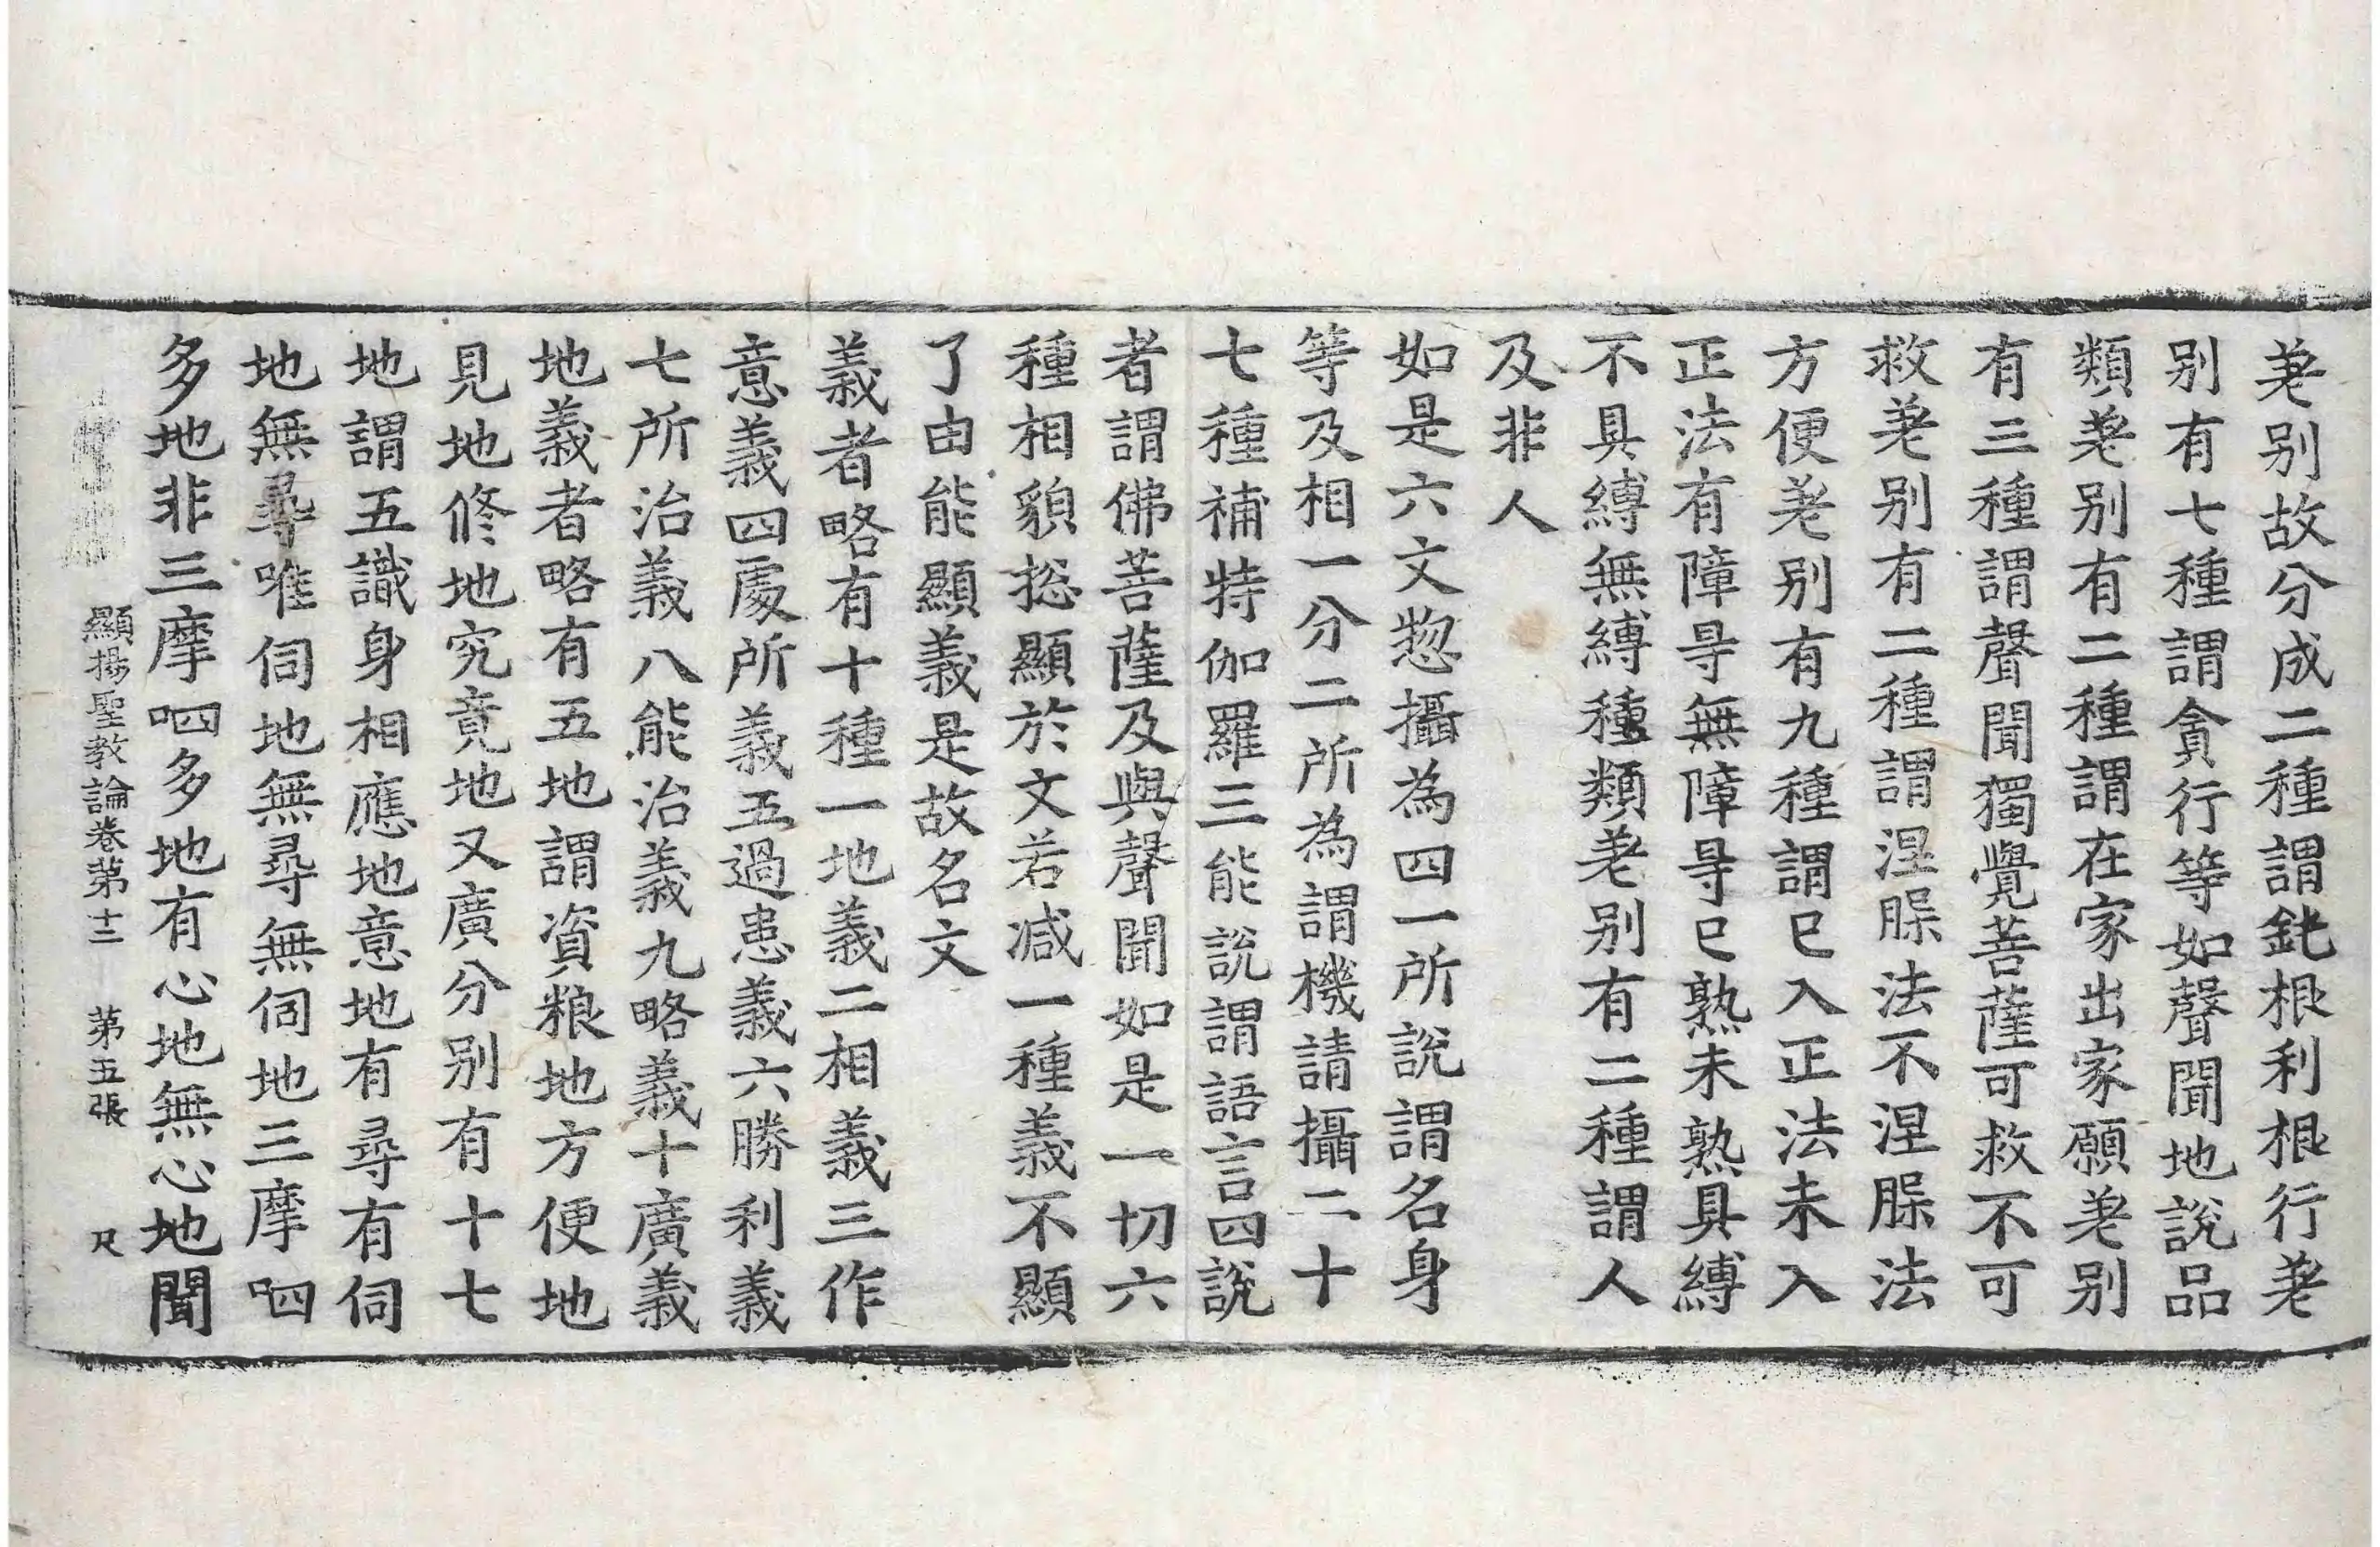 差别故分成二種謂鈍根利根行差
别有七種謂貪行等如聲聞地說品
類差别有二種謂在家出家願差别
有三種謂聲聞獨覺菩薩可救不可
救差别有二種謂涅槃法不涅槃法
方便差别有九種謂已入正法未入
正法有障㝵無障㝵已熟未熟具縛
不具縛無縛種類差别有二種謂人
及非人
如是六文惣攝為四一所說謂名身
等及相一分二所為謂機請攝二十
七種補特伽羅三能說謂語言四說
者謂佛菩薩及與聲聞如是一切六
種相貌捴顯於文若减一種義不顯
了由能顯義是故名文
義者略有十種一地義二相義三作
意義四處所義五過患義六勝利義
七所治義八能治義九略義十廣義
地義者略有五地謂資粮地方便地
見地修地究竟地又廣分别有十七
地謂五識身相應地意地有尋有伺
地無尋唯伺地無尋無伺地三摩呬
多地非三摩呬多地有心地無心地聞
顯揚聖教論卷第十二 第五張 尺